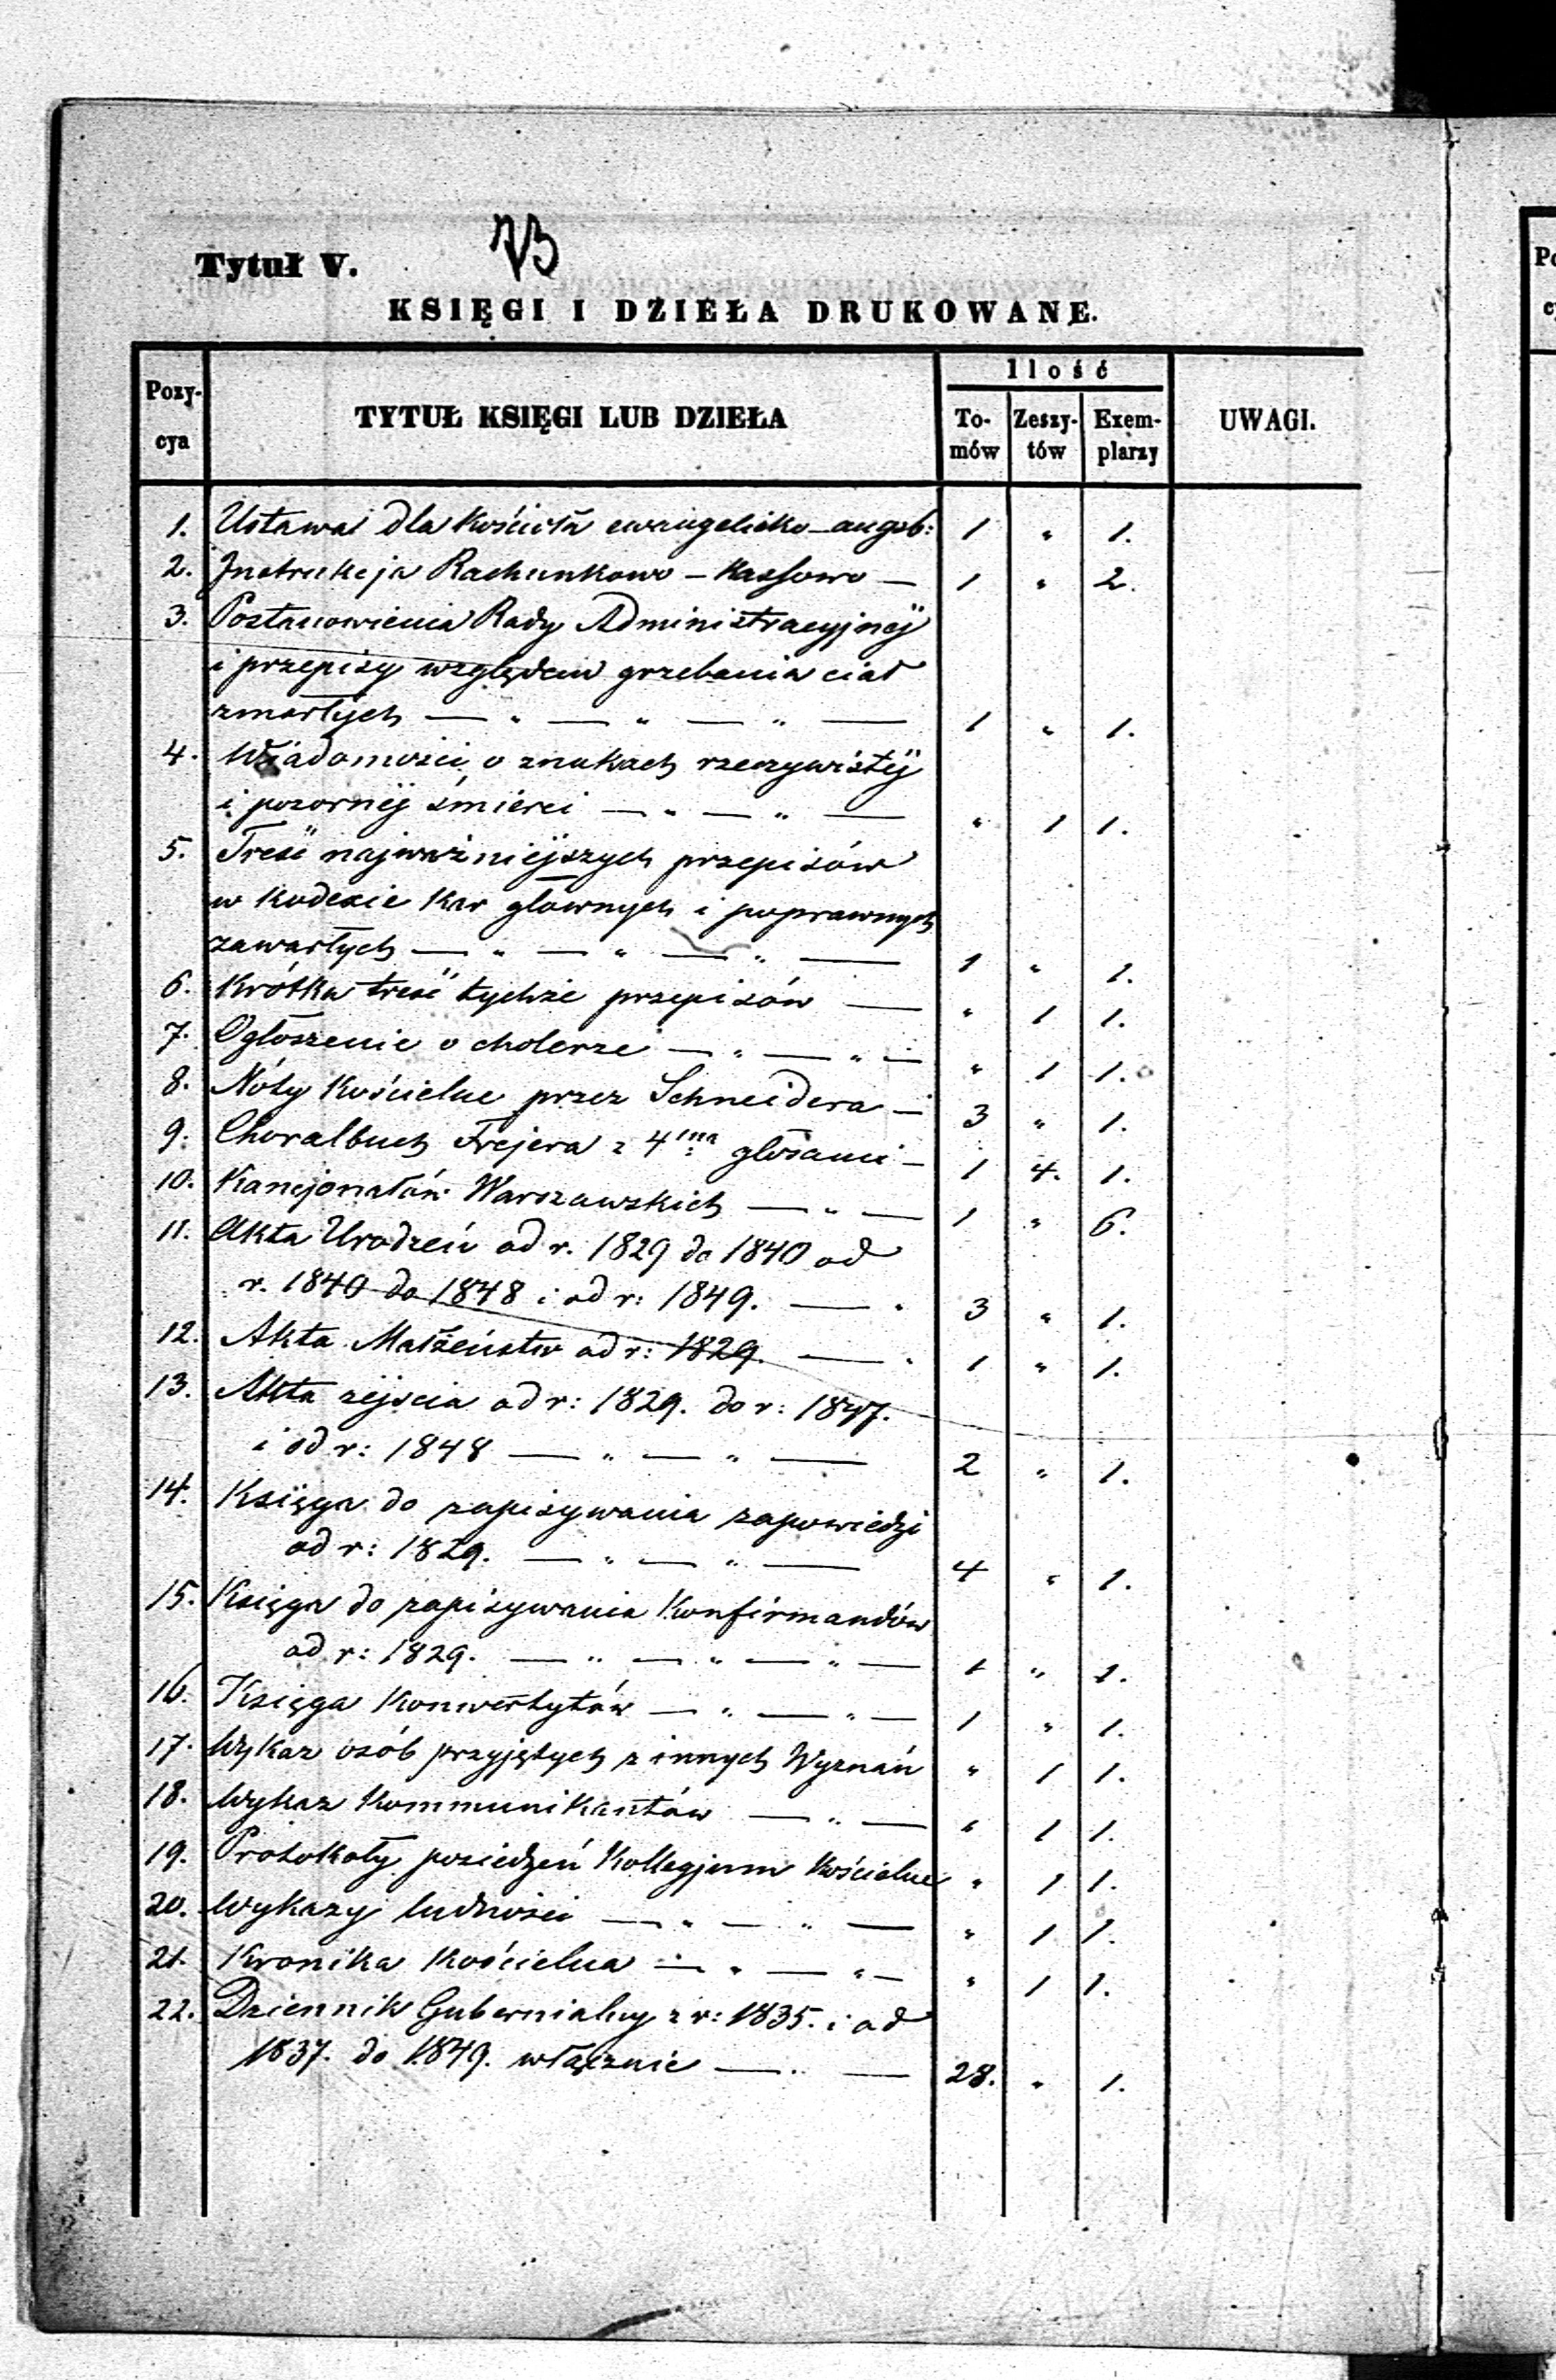 73
Tytuł V.
KSIĘGI I DZIEŁA DRUKOWANE.
Pozy-cya | TYTUŁ KSIĘGI LUB DZIEŁA | Ilość | UWAGI.
To-mów | Zeszy-tów | Exem-plarzy
1. Ustawa dla Kościoła ewangelicko-augsb: 1 " 1.
2. Instrukcja Rachunkowo — Kassowa — 1 " 2.
3. Postanowienia Rady Administracyjnéj
i przepisy względem grzebania ciał
zmarłych — " — " — " — 1 " 1.
4. Wiadomości o znakach rzeczywistéj
i pozornéj śmierci — " — " — " 1 1.
5. Treść najważniejszych przepisów
w kodexie kar głównych i poprawnych
zawartych — " — " — " — 1 " 1.
6. Krótka treść tychże przepisów — " 1 1.
7. Ogłoszenie o cholerze — " — " — " 1 1.
8. Nóty Kościelne przez Schneidera — 3 " 1.
9. Choralbuch Frejera z 4ma głosami — 1 4. 1.
10. Kancjonałów Warszawskich — " — 1 " 6.
11. Akta Urodzeń od r. 1829 do 1840 od
r. 1840 do 1848 i od r: 1849. — " 3 " 1.
12. Akta Małżeństw od r: 1829. — " 1 " 1.
13. Akta zejścia od r: 1829. do r: 1847.
i od r: 1848 — " — " — 2 " 1.
14. Księga do zapisywania zapowiedzi
od r: 1829. — " — " — 4 " 1.
15. Księga do zapisywania Konfirmandów
od r: 1829. — " — " — " — 1 " 1.
16. Księga Konwertytów — " — " — 1 " 1.
17. Wykaz osób przyjętych z innych Wyznań " 1 1.
18. Wykaz Kommunikantów — " — " 1 1.
19. Protokoły posiedzeń Kollegjum Kościelne " 1 1.
20. Wykazy ludności — " — " — " 1 1.
21. Kronika Kościelna — " — " — " 1 1.
22. Dziennik Gubernialny z r: 1835. i od
1837. do 1849. włącznie — " — 28. " 1.
Po
c